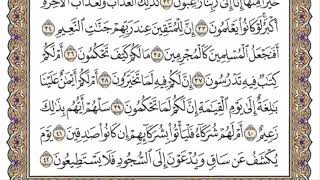 خَيْرًا مِّنْهَا إِنَّا إِلَىٰ رَبِّنَا رَٰغِبُونَ ٣٢ كَذَٰلِكَ ٱلْعَذَابُ وَلَعَذَابُ ٱلْءَاخِرَةِ
أَكْبَرُ لَوْ كَانُوا۟ يَعْلَمُونَ ٣٣ إِنَّ لِلْمُتَّقِينَ عِندَ رَبِّهِمْ جَنَّٰتِ ٱلنَّعِيمِ ٣٤
أَفَنَجْعَلُ ٱلْمُسْلِمِينَ كَٱلْمُجْرِمِينَ ٣٥ مَا لَكُمْ كَيْفَ تَحْكُمُونَ ٣٦ أَمْ لَكُمْ
كِتَٰبٌ فِيهِ تَدْرُسُونَ ٣٧ إِنَّ لَكُمْ فِيهِ لَمَا تَخَيَّرُونَ ٣٨ أَمْ لَكُمْ أَيْمَٰنٌ عَلَيْنَا
بَٰلِغَةٌ إِلَىٰ يَوْمِ ٱلْقِيَٰمَةِ إِنَّ لَكُمْ لَمَا تَحْكُمُونَ ٣٩ سَلْهُمْ أَيُّهُم بِذَٰلِكَ
زَعِيمٌ ٤٠ أَمْ لَهُمْ شُرَكَآءُ فَلْيَأْتُوا۟ بِشُرَكَآئِهِمْ إِن كَانُوا۟ صَٰدِقِينَ ٤١ يَوْمَ
يُكْشَفُ عَن سَاقٍ وَيُدْعَوْنَ إِلَى ٱلسُّجُودِ فَلَا يَسْتَطِيعُونَ ٤٢